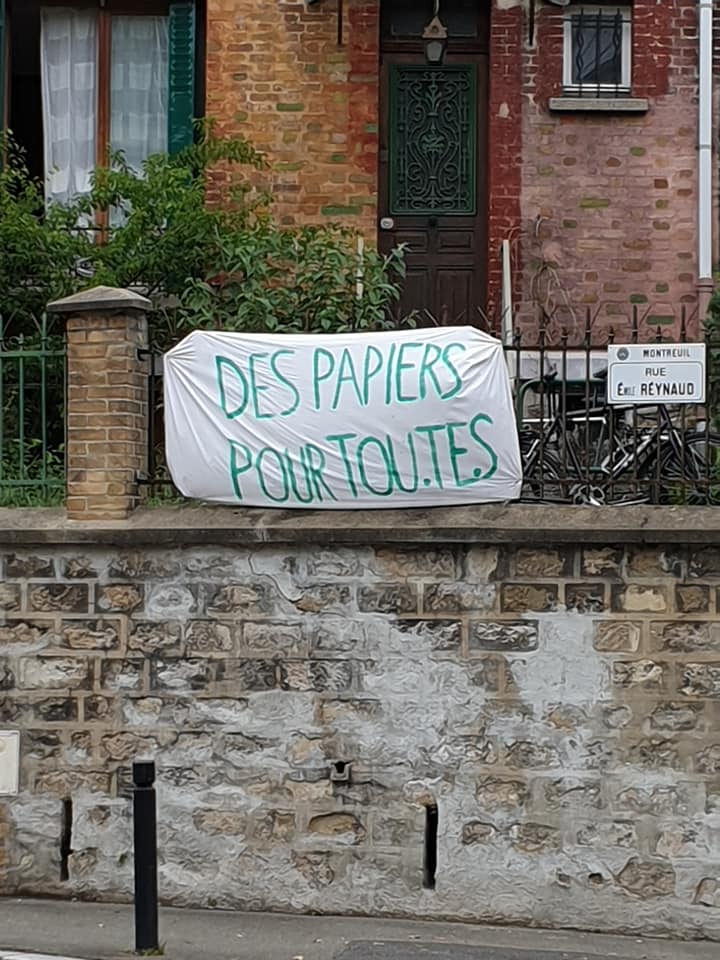 DES PAPIERS
POUR TOU.TE.S
MONTREUIL
RUE
ÉMILE RÉYNAUD